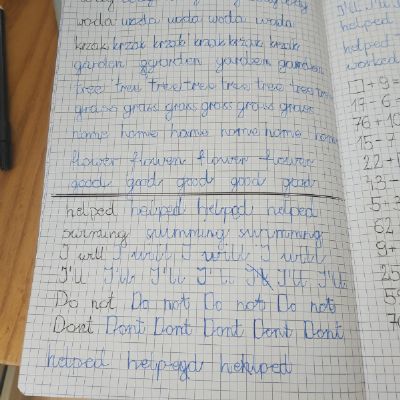 woda woda woda woda woda
krzak krzak krzak krzak krzak krzak
garden garden garden garden
tree tree tree tree tree tree tree
grass grass grass grass grass grass
home home home home home home
flower flower flower flower
good good good good good
helped helped helped helped
swimming swimming swimming
I will I will I will I will
I'll I'll I'll I'll I'll I'll
Do not Do not Do not Do not
Dont Dont Dont Dont Dont Dont
helped helped helped
I'll I'll
helped
helped
worked
□+9=
17-6=
76+10
15-7